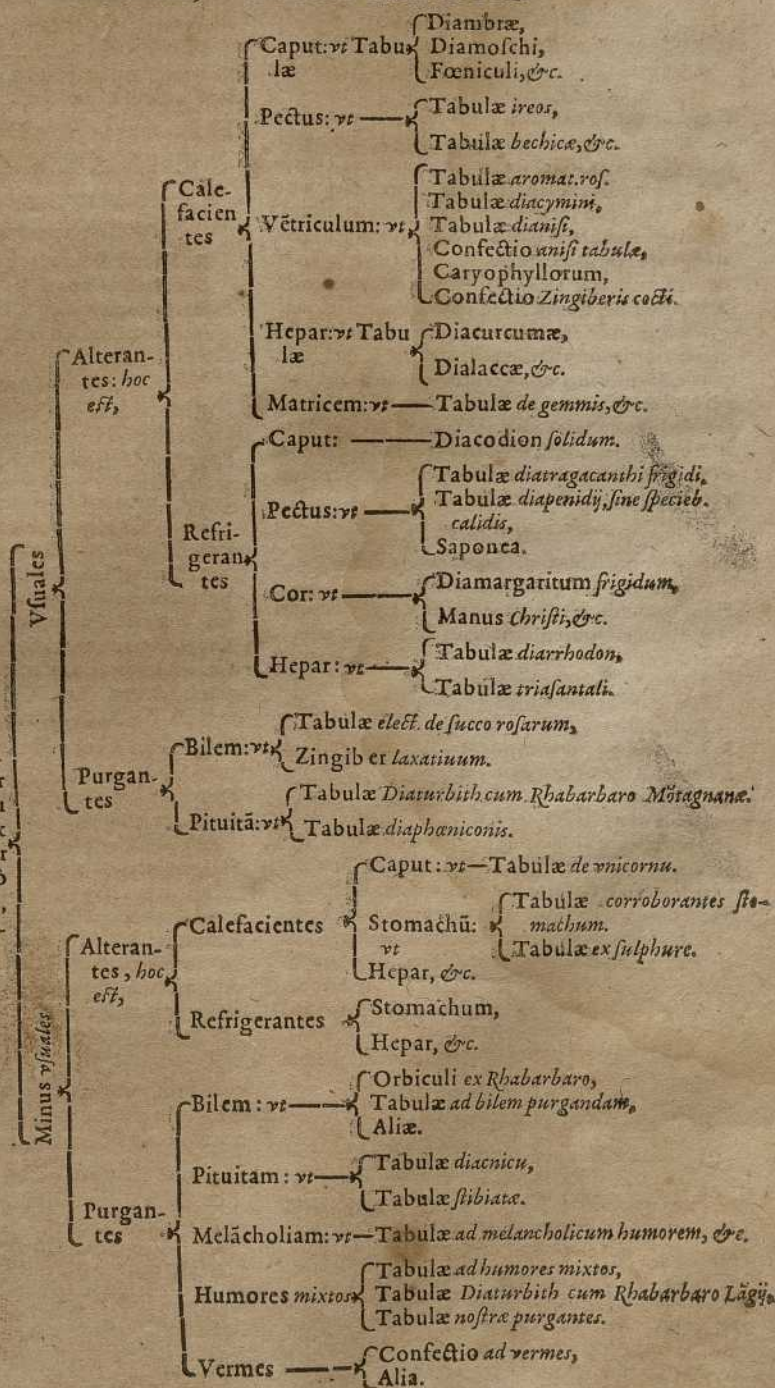 Vſuales
Alteran-
tes: hoc
eſt,
Cale-
facien
tes
Caput: vt Tabu
læ
Diambræ,
Diamoſchi,
Fœniculi, &c.
Pectus: vt
Tabulæ ireos,
Tabulæ bechicæ, &c.
Vẽtriculum: vt
Tabulæ aromat. roſ.
Tabulæ diacymini,
Tabulæ dianiſi,
Confectio aniſi tabulæ,
Caryophyllorum,
Confectio Zingiberis cocti.
Hepar: vt Tabu
læ
Diacurcumæ,
Dialaccæ, &c.
Matricem: vt
Tabulæ de gemmis, &c.
Refri-
geran
tes
Caput:
Diacodion ſolidum.
Pectus: vt
Tabulæ diatragacanthi frigidi,
Tabulæ diapenidij, ſine ſpecieb.
calidis,
Saponea.
Cor: vt
Diamargaritum frigidum,
Manus Chriſti, &c.
Hepar: vt
Tabulæ diarrhodon,
Tabulæ triaſantali.
Purgan-
tes
Bilem: vt
Tabulæ elect. de ſucco roſarum,
Zingib er laxatiuum.
Pituitã: vt
Tabulæ Diaturbith cum Rhabarbaro Mõtagnanæ.
Tabulæ diaphœniconis.
Minus vſuales
Alteran-
tes, hoc
eſt,
Calefacientes
Caput: vt
Tabulæ de vnicornu.
Stomachũ:
vt
Tabulæ corroborantes ſto-
machum.
Tabulæ ex ſulphure.
Hepar, &c.
Refrigerantes
Stomachum,
Hepar, &c.
Purgan-
tes
Bilem: vt
Orbiculi ex Rhabarbaro,
Tabulæ ad bilem purgandam,
Aliæ.
Pituitam: vt
Tabulæ diacnicu,
Tabulæ ſtibiatæ.
Melãcholiam: vt
Tabulæ ad melancholicum humorem, &c.
Humores mixtos
Tabulæ ad humores mixtos,
Tabulæ Diaturbith cum Rhabarbaro Lãgij,
Tabulæ noſtræ purgantes.
Vermes
Confectio ad vermes,
Alia.